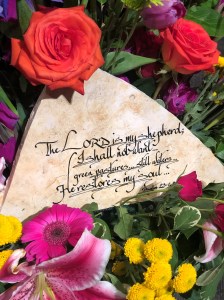 The LORD is my shepherd;
I shall not want.
green pastures... still waters
He restores my soul...